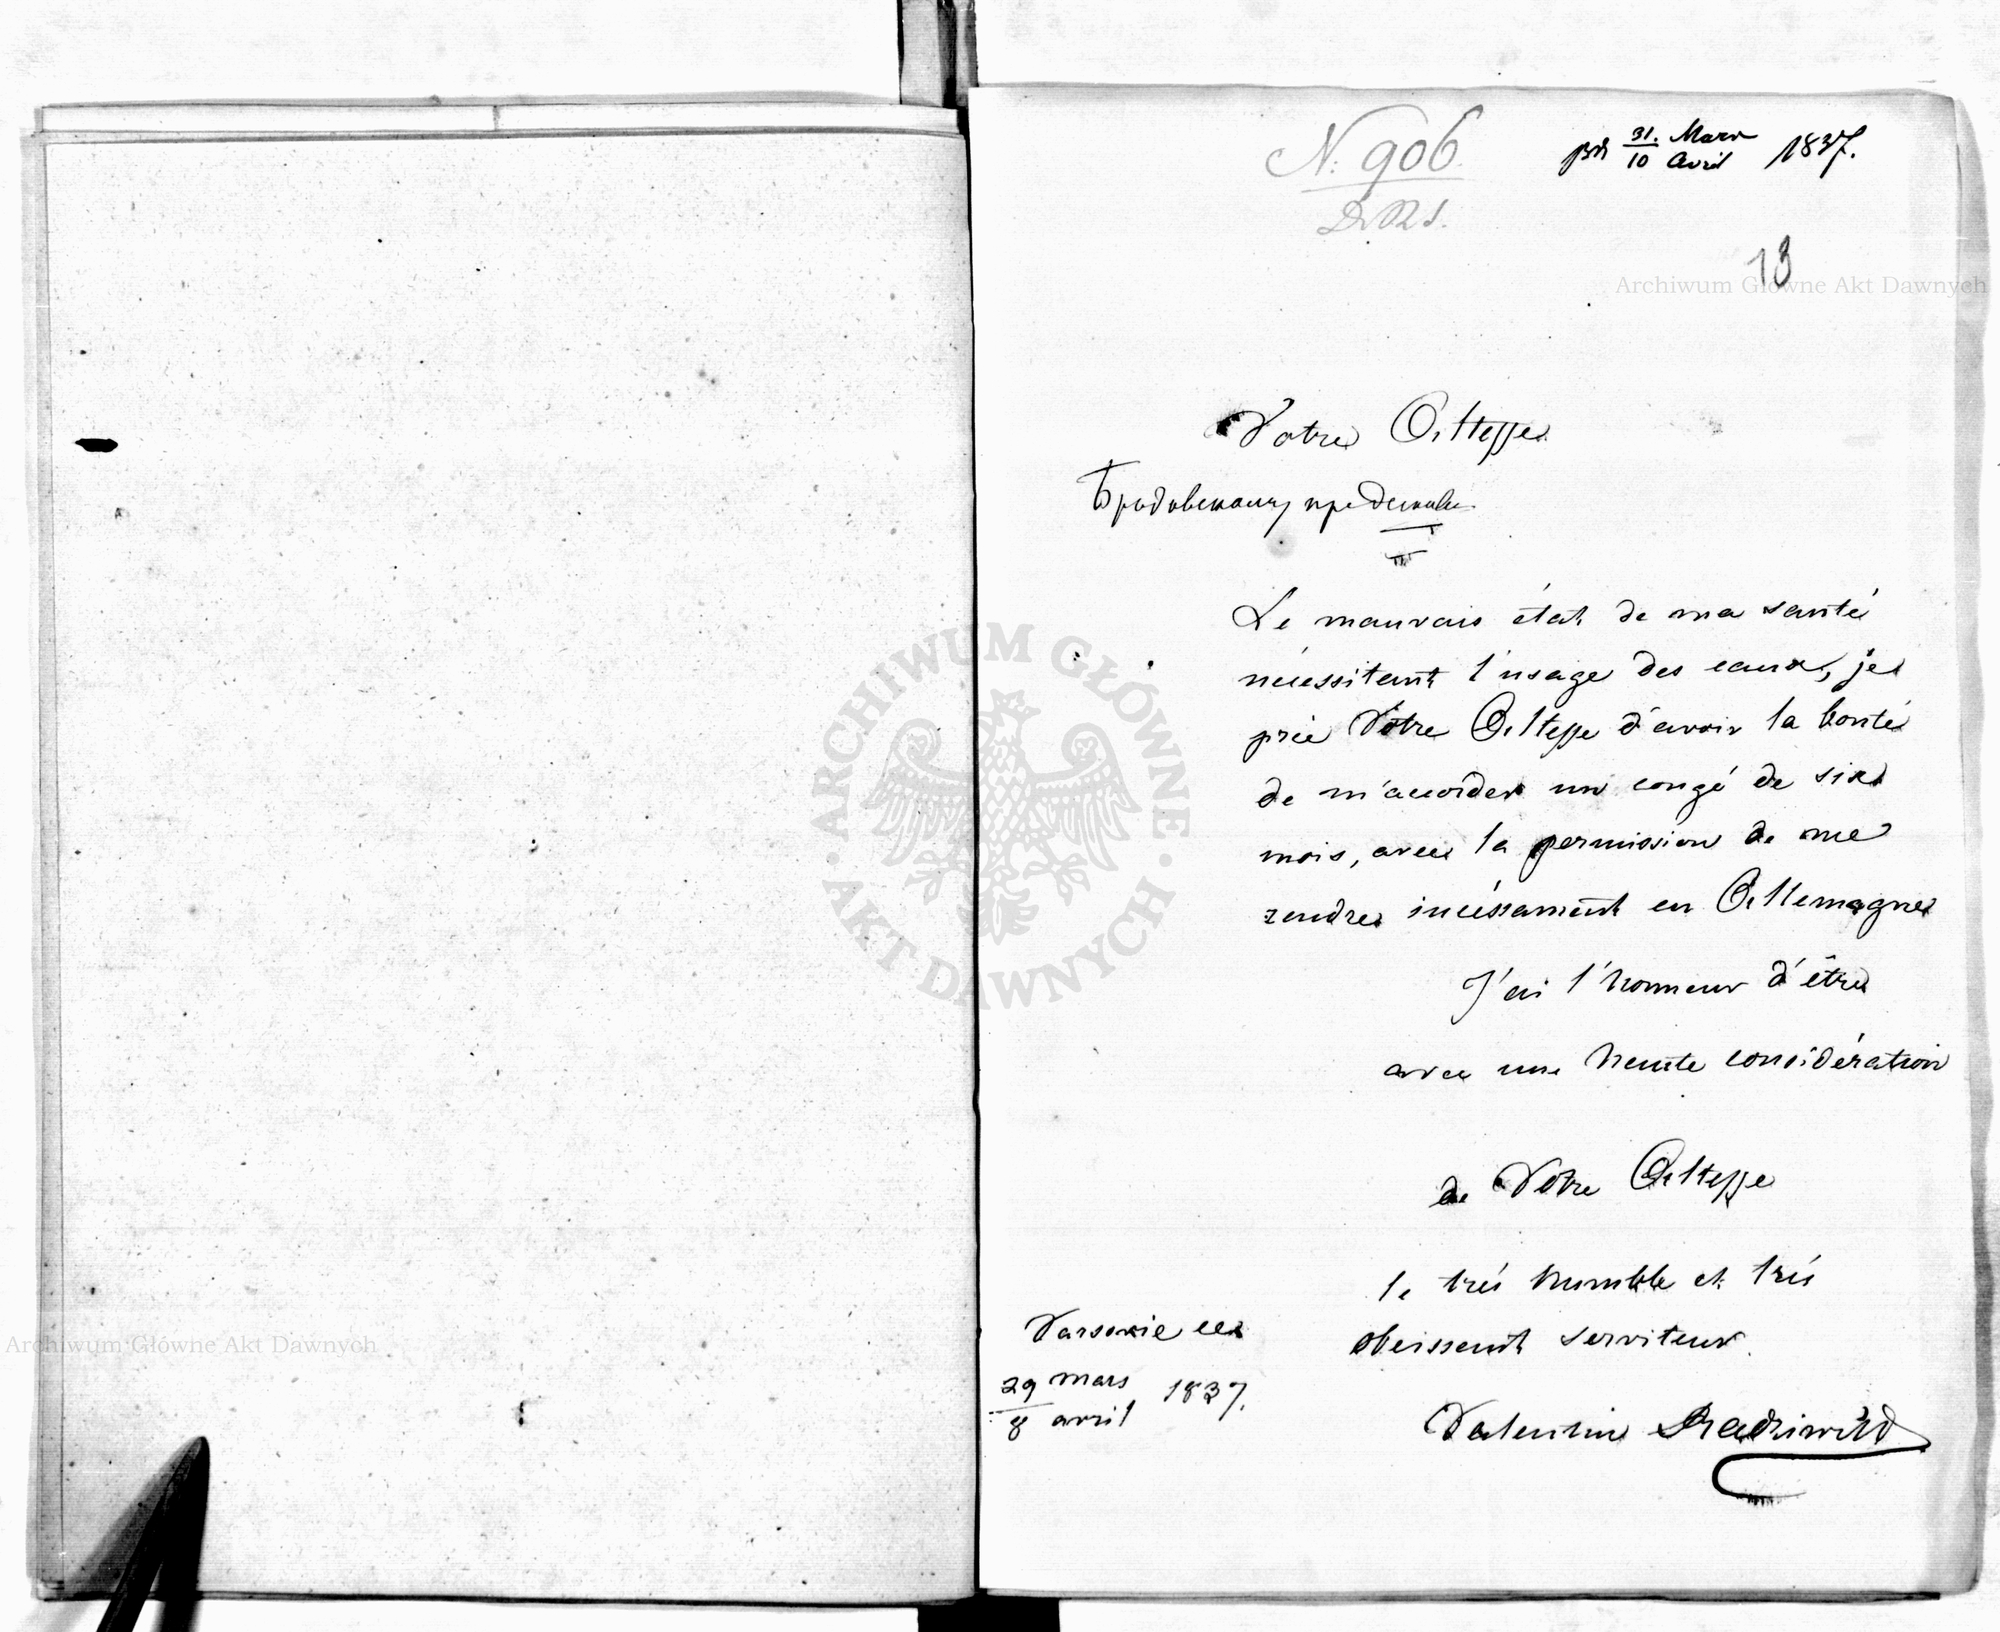 N. 906.
31. Mars
10 Avril 1837.
13
Votre Altesse
Le mauvais état de ma santé
nécessitant l'usage des eaux, je
prie Votre Altesse d'avoir la bonté
de m'accorder un congé de six
mois, avec la permission de me
rendre incéssament en Allemagne
J'ai l'honneur d'être
avec une haute considération
de Votre Altesse
le trés humble et trés
obeissant serviteur.
Varsovie ce
29 mars
8 avril 1837.
Valentin Radziwiłł
Archiwum Główne Akt Dawnych
ARCHIWUM GŁÓWNE
AKT DAWNYCH
Archiwum Główne Akt Dawnych